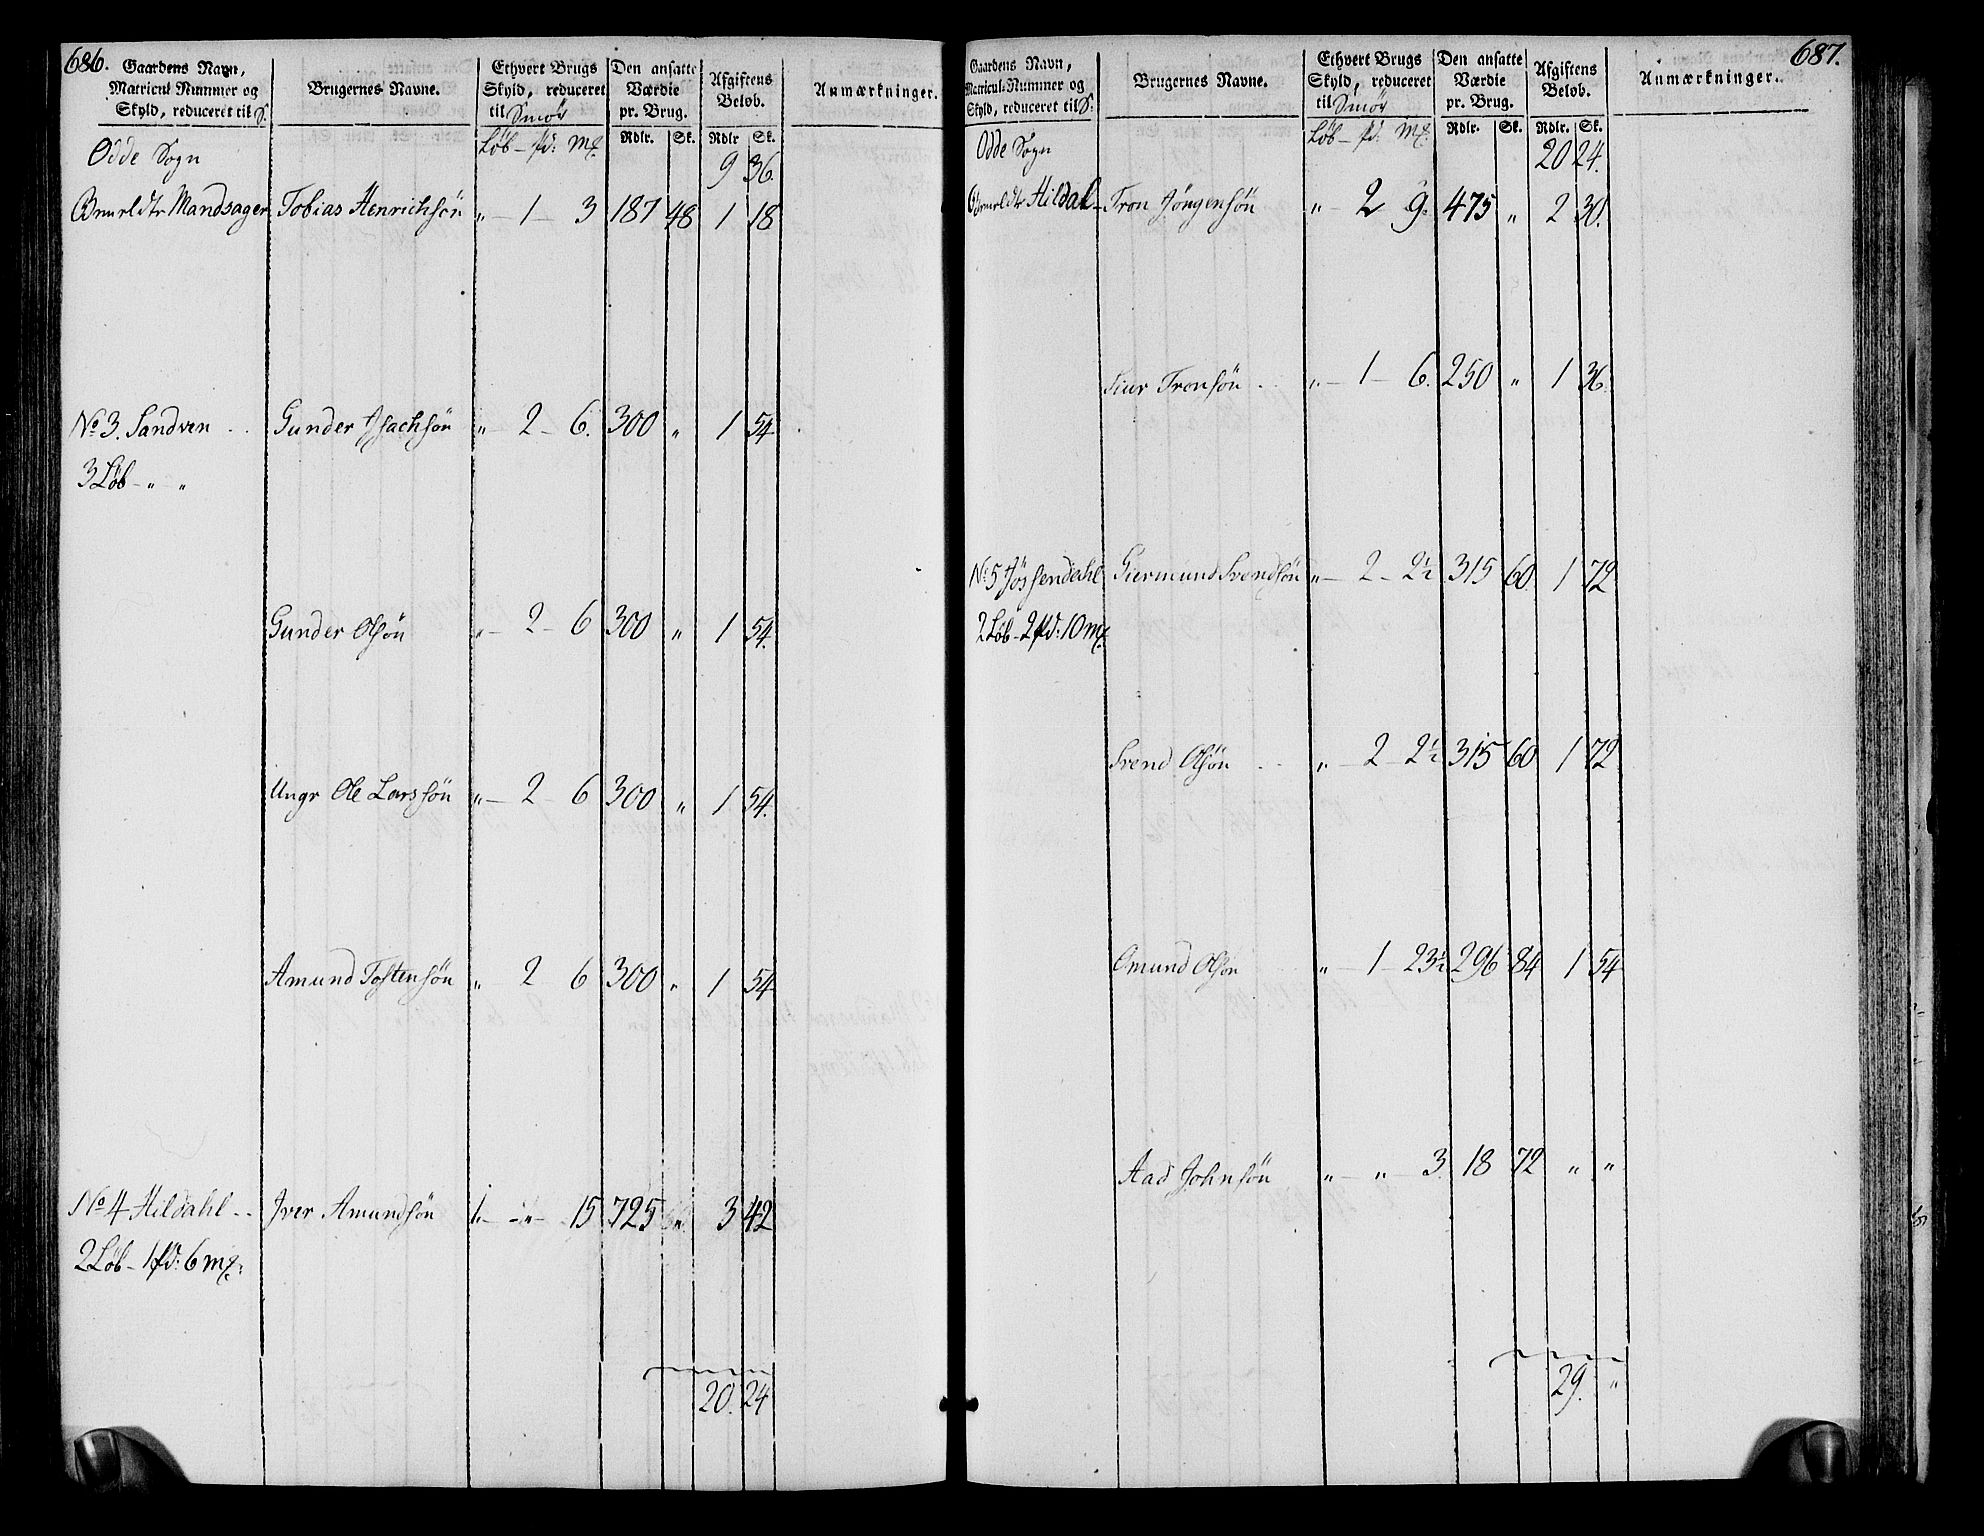 686.
Gaardens Navn, Matricul Nummer og Skyld, reduceret til S. | Brugernes Navne. | Ethvert Brugs Skyld, reduceret til Smør | Den ansatte Værdie pr. Brug. | Afgiftens Beløb. | Anmærkninger.
Løb - pd: mk: | Rdlr. | Sk. | Rdlr | Sk.
Odde Sogn 9 36.
Mandsager Tobias Henrichsön " - 1 - 3 187 48 1 18
No 3. Sandven - - Gunder Isachsön " - 2 - 6. 300 " 1 54
3 Løb - " "
Gunder Olsön " - 2 - 6 300 " 1 54.
Ungr Ole Larssön " - 2 - 6 300 " 1 54.
Amund Tostensön " - 2 6 300 " 1 54
No 4 Hildahl - - Iver Amundsön 1. - " - 15 725 " 3 42
2 Løb - 1 pd: 6 mk:
20. 24
687.
Gaardens Navn, Matricul-Nummer og Skyld, reduceret til S. | Brugernes Navne. | Ethvert Brugs Skyld, reduceret til Smör | Den ansatte Værdie pr. Brug. | Afgiftens Beløb. | Anmærkninger.
Løb - pd: mk: | Rdlr. | Sk. | Rdlr. | Sk.
Odde Sogn 20 24.
Hildal - Tron Jörgensön " - 2 9. 475 " 2 30.
Siur Tronsön - - " - 1 - 6. 250 " 1 36.
No: 5 Jössendahl Giermund Svendsön " - 2 - 2½ 315 60 1 72
2 Løb - 2 pd: 10 mk.
Svend Olsön - - " - 2 - 2½ 315 60 1 72
Omund Olsön " - 1 - 23½ 296 84 1 54
Aad Johnsön " - " - 3. 18 72 " "
29. "